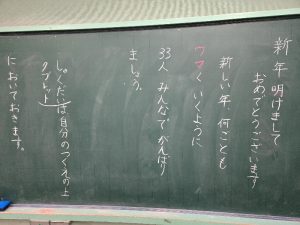 新年明けまして
おめでとうございます
新しい年、何ごとも
ウマくいくように
33人 みんなで がんばり
ましょう。
しゅくだいは自分のつくえの上
タブレット
においておきます。